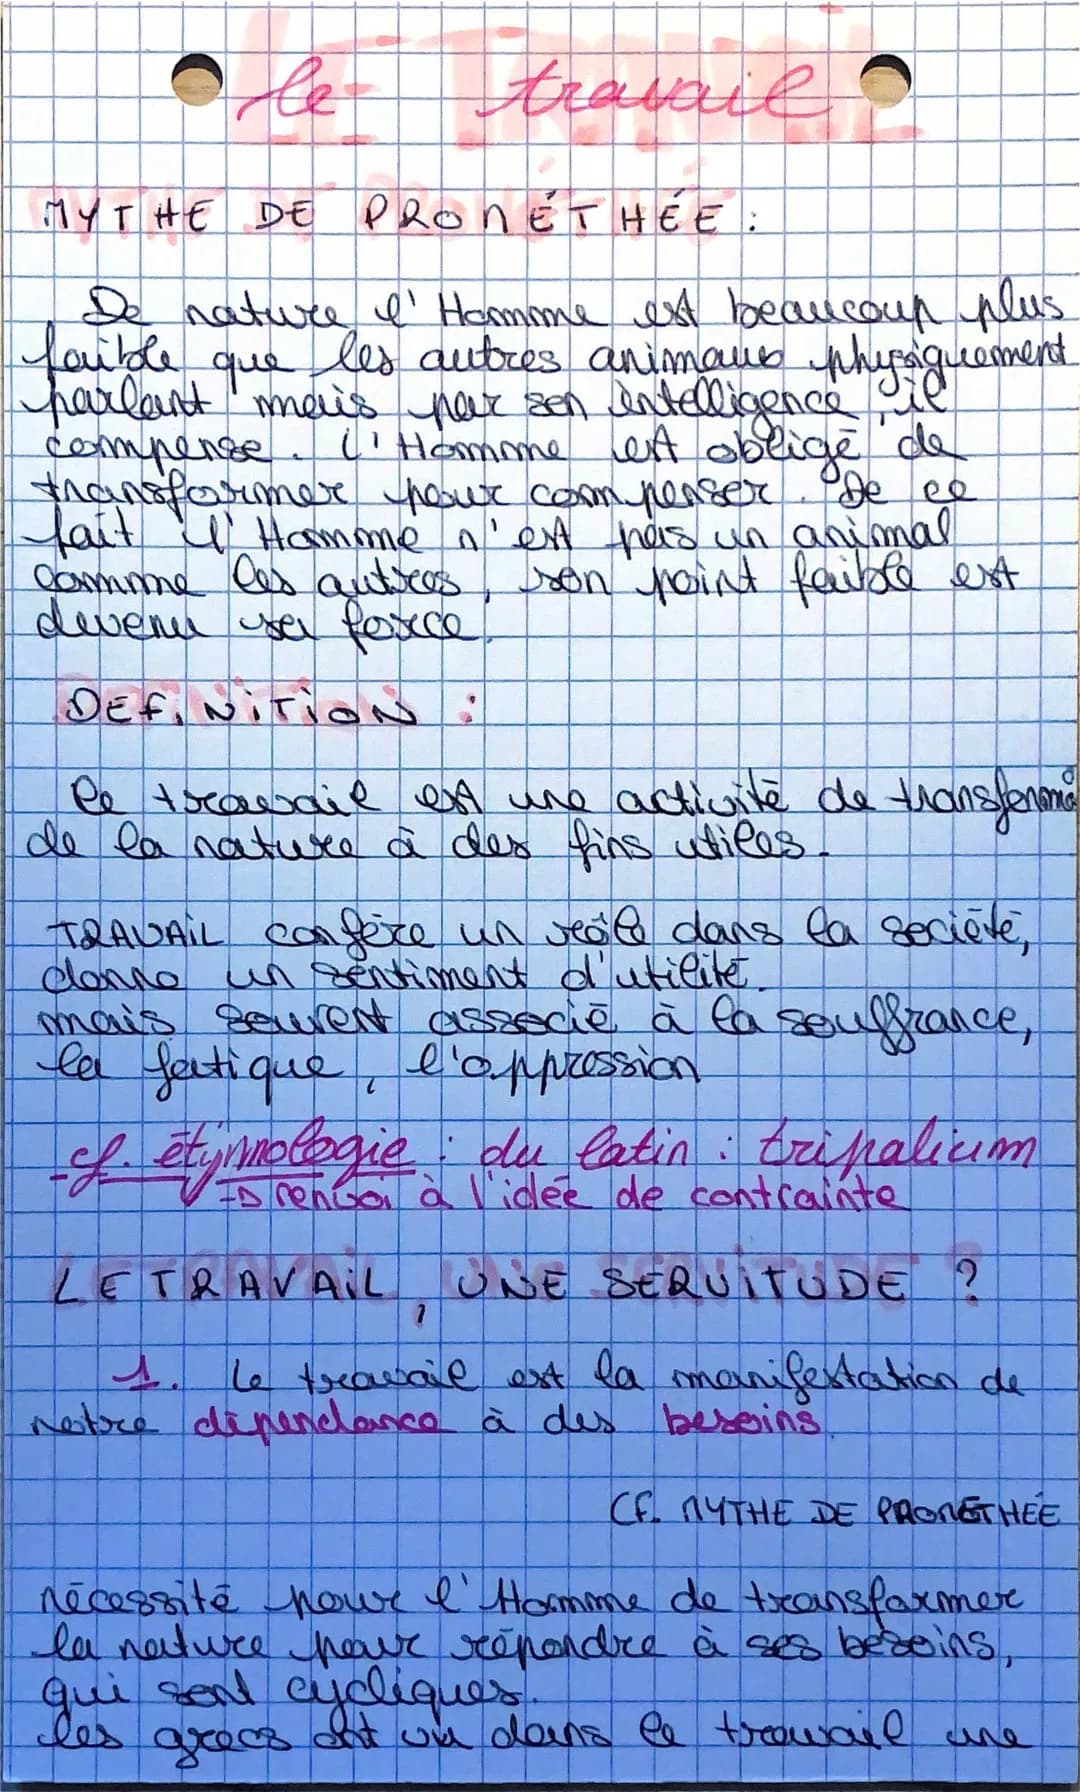 le travail
MYTHE DE PROMÉTHÉE :
De nature l'Homme est beaucoup plus
faible que les autres animaux physiquement
parlant mais par son intelligence, il
compense. L'Homme est obligé de
transformer pour compenser. De ce
fait l'Homme n'est pas un animal
comme les autres, son point faible est
devenu sa force.
DEFINITION :
Le travail est une activité de transforma
de la nature à des fins utiles.
TRAVAIL confère un rôle dans la société,
donne un sentiment d'utilité.
mais souvent associé à la souffrance,
la fatigue, l'oppression
cf. étymologie : du latin : tripalium
-> renvoi à l'idée de contrainte
LE TRAVAIL, UNE SERVITUDE ?
1. Le travail est la manifestation de
notre dépendance à des besoins.
CF. MYTHE DE PROMÉTHÉE
nécessité pour l'Homme de transformer
la nature pour répondre à ses besoins,
qui sont cycliques.
les grecs ont vu dans le travail une